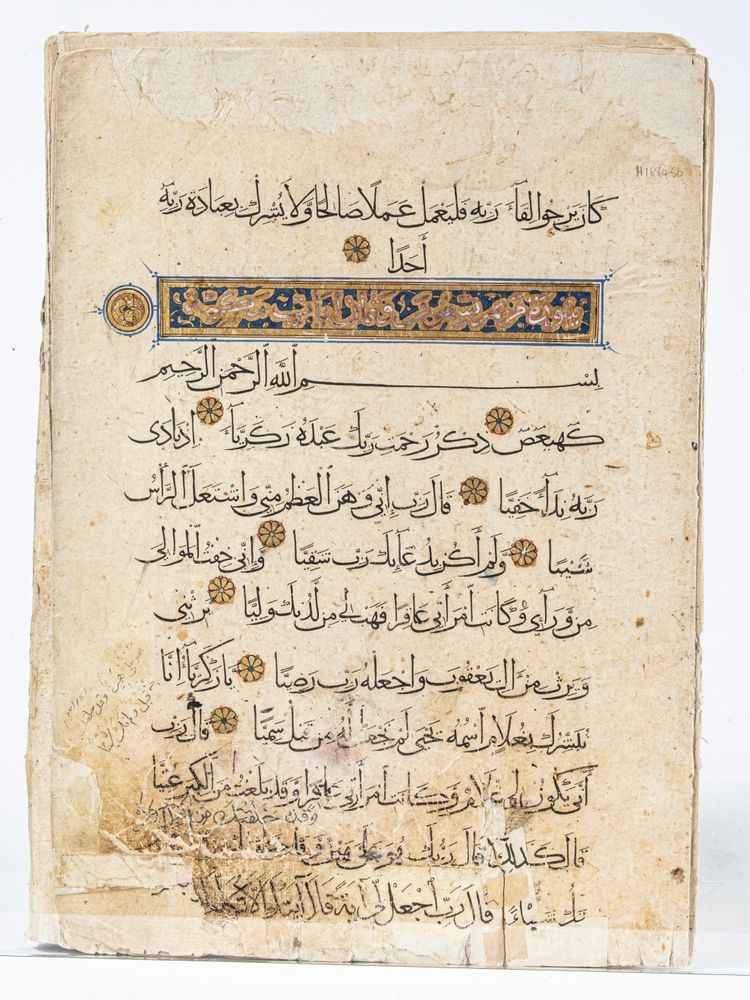 H1664SB
كان يرجوا لقاء ربه فليعمل عملا صالحا ولا يشرك بعبادة ربه
أحدا
سورة مريم تسعون و ثمان آيات مكية
بسم الله الرحمن الرحيم
كهيعص ذكر رحمت ربك عبده زكريا اذ نادى
ربه نداء خفيا قال رب اني وهن العظم مني واشتعل الرأس
شيبا ولم أكن بدعايك رب شقيا واني خفت الموالى
من ورائي وكانت امرأتي عاقرا فهب لي من لدنك وليا يرثني
ويرث من ال يعقوب واجعله رب رضيا يا زكريا انا
نبشرك بغلام اسمه يحيى لم نجعل له من قبل سميا قال رب
أنى يكون لي غلام وكانت امرأتي عاقرا وقد بلغت من الكبر عتيا
وقد خلقتك من قبل
قال كذلك قال ربك هو علي هين وقد
تك شياء قال رب اجعل لي آية قال آيتك الا تكلم